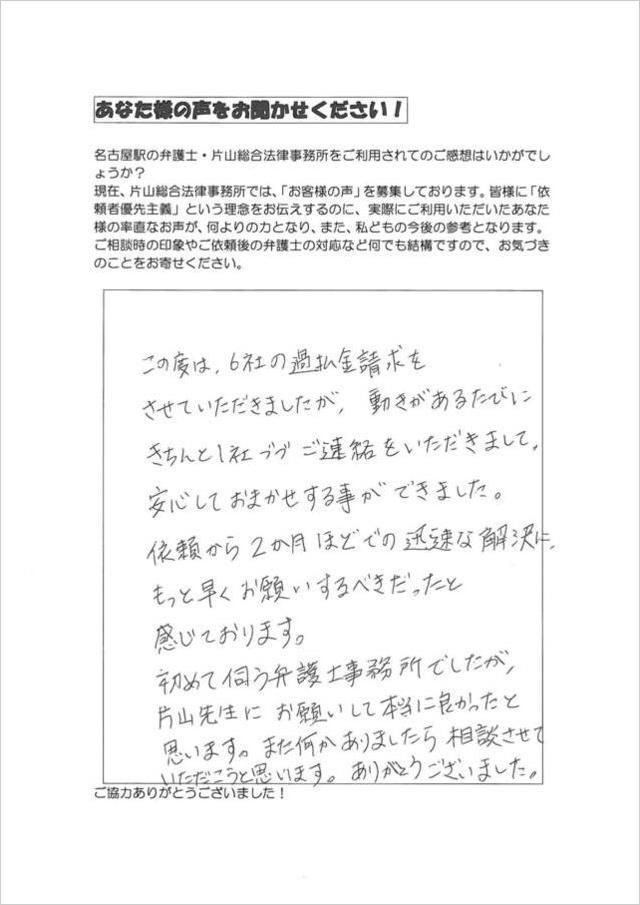 あなた様の声をお聞かせください！
名古屋駅の弁護士・片山総合法律事務所をご利用されてのご感想はいかがでし
ょうか？
現在、片山総合法律事務所では、「お客様の声」を募集しております。皆様に「依
頼者優先主義」という理念をお伝えするのに、実際にご利用いただいたあなた
様の率直なお声が、何よりの力となり、また、私どもの今後の参考となります。
ご相談時の印象やご依頼後の弁護士の対応など何でも結構ですので、お気づき
のことをお寄せください。
この度は、6社の過払金請求を
させていただきましたが、動きがあるたびに
きちんと1社づづご連絡をいただきまして、
安心しておまかせする事ができました。
依頼から2か月ほどでの迅速な解決に、
もっと早くお願いするべきだったと
感じております。
初めて伺う弁護士事務所でしたが、
片山先生にお願いして本当に良かったと
思います。また何かありましたら相談させて
いただこうと思います。ありがとうございました。
ご協力ありがとうございました！